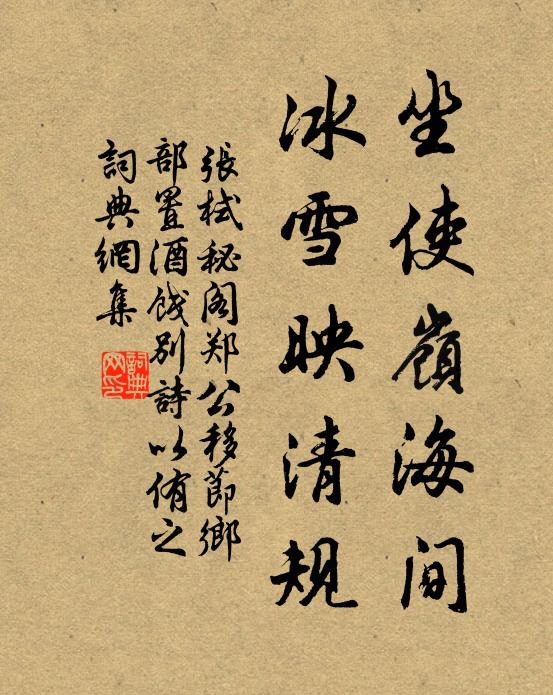 坐使嶺海间
冰雪映清規
張栻秘阁郑公移節鄉
部置酒餞别詩以侑之
詞典網集
詞典
网印